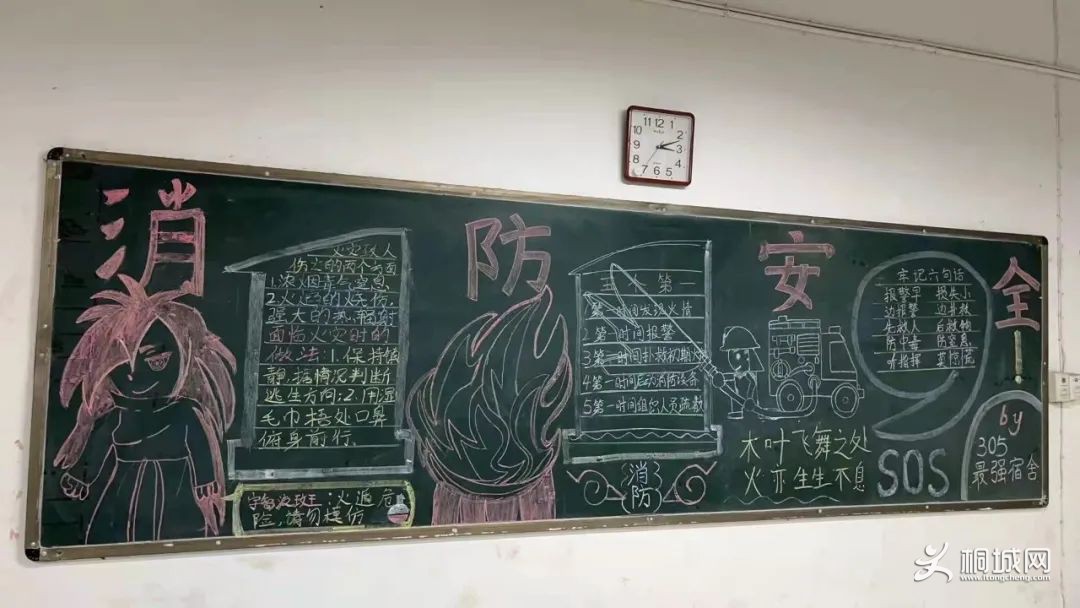 消防安全!
火灾致人
伤亡的两个方面
1.浓烟毒气窒息
2.火焰的烧伤,
强大的热辐射
面临火灾时的
做法:1.保持镇
静,据情况判断
逃生方向;2.用湿
毛巾捂处口鼻
俯身前行.
:火遁危
险,请勿模仿
五个第一
1第一时间发现火情
2第一时间报警
3第一时间扑救初期火
4第一时间启动消防设备
5第一时间组织人员疏散
消防
木叶飞舞之处
火亦生生不息
牢记六句话
报警早 损失小
边报警 边扑救
先救人 后救物
防中毒 防窒息
听指挥 莫惊慌
SOS
by
305
最强宿舍
12
1
2
3
4
5
6
7
8
9
10
11
桐城网
www.itongcheng.com